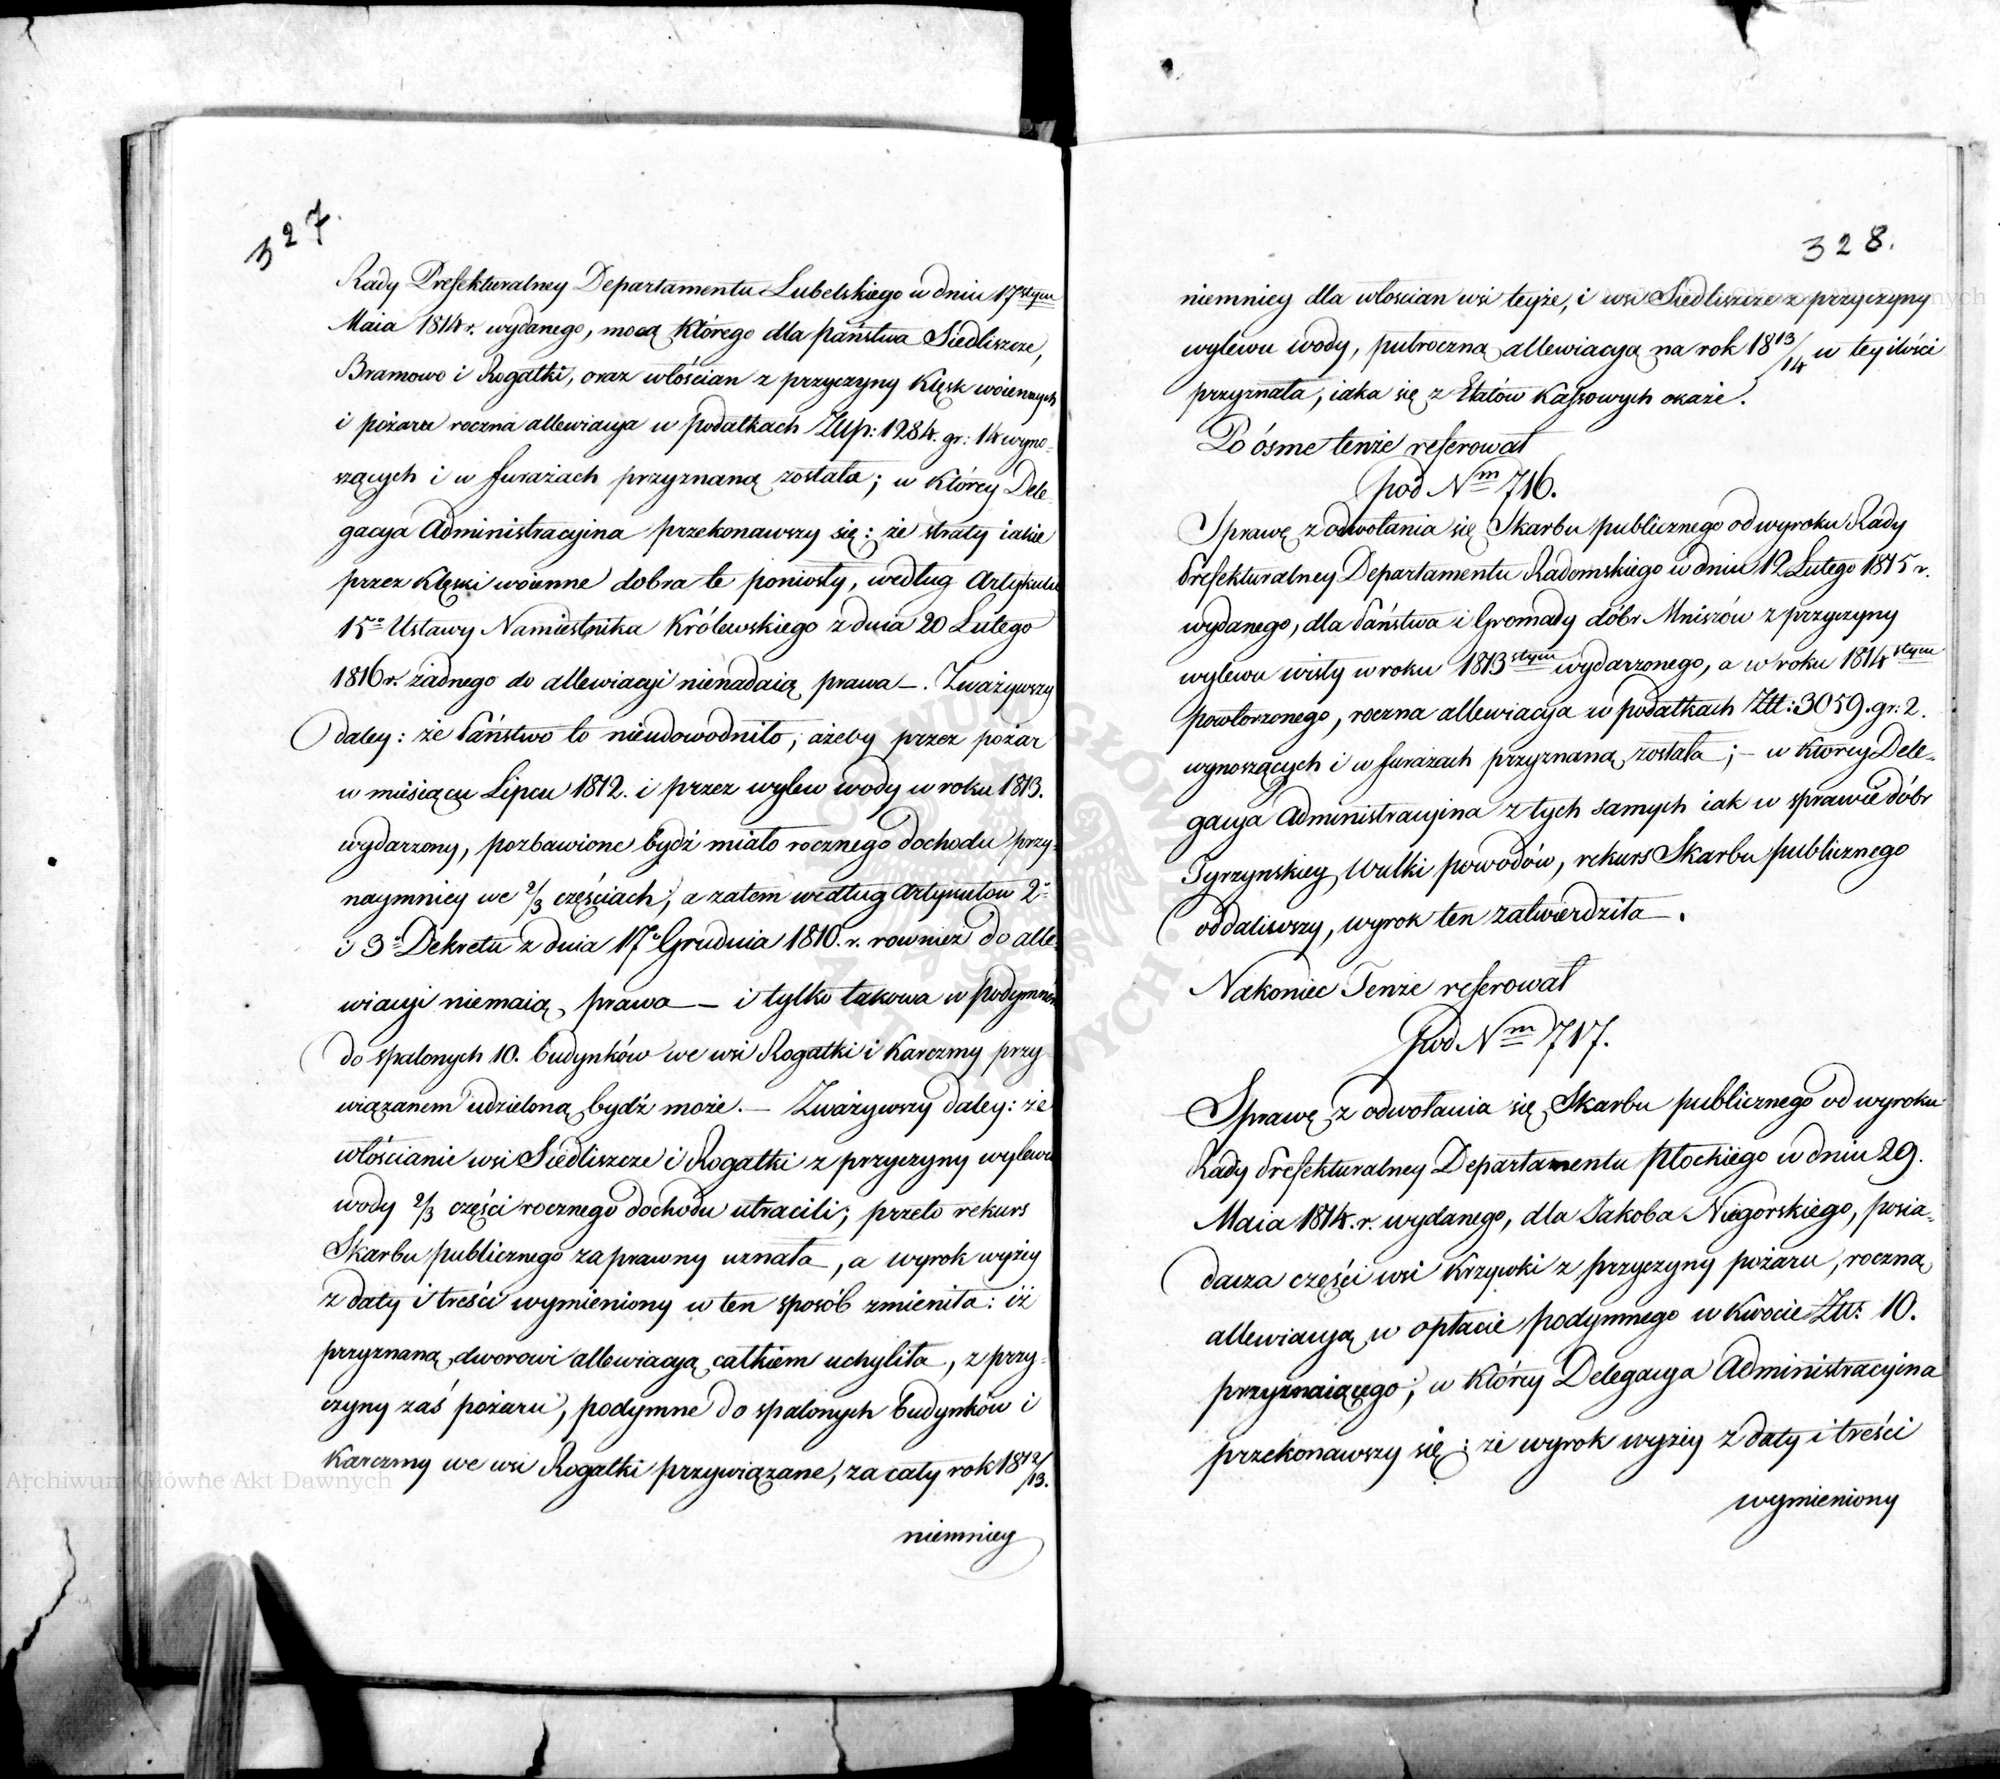 327.
Rady Prefekturalney Departamentu Lubelskiego w dniu 17stym
Maia 1814r. wydanego, mocą którego dla państwa Siedliszcze,
Bramowo i Rogatki, oraz włościan z przyczyny Klęsk woiennych
i pożaru roczna allewiacya w podatkach Złłp: 1284. gr: 14 wyno-
szących i w furażach przyznaną została; w którey Dele-
gacya Administracyina przekonawszy się: że straty iakie
przez Klęski woienne dobra te poniosły, według Artykułu
15º Ustawy Namiestnika Królewskiego z dnia 20 Lutego
1816r. żadnego do allewiacyi nienadaią prawa —. Zważywszy
daley: że Państwo to nieudowodniło, ażeby przez pożar
w miesiącu Lipcu 1812. i przez wylew wody w roku 1813.
wydarzony, pozbawione bydź miało rocznego dochodu przy-
naymniey we 2/3 częściach; a zatem według Artykułów 2º
i 3º Dekretu z dnia 17º Grudnia 1810. r. rownież do alle-
wiacyi niemaią prawa — i tylko takowa w podymném
do spalonych 10. budynków we wsi Rogatki i Karczmy przy-
wiązanem udzieloną bydź może. — Zważywszy daley: że
włościanie wsi Siedliszcze i Rogatki z przyczyny wylewu
wody 2/3 części rocznego dochodu utracili; przeto rekurs
Skarbu publicznego za prawny uznała, a wyrok wyżey
z daty i treści wymieniony w ten sposób zmieniła: iż
przyznaną dworowi allewiacyą całkiem uchyliła, z przy-
czyny zaś pożaru, podymne do spalonych budynków i
Karczmy we wsi Rogatki przywiązane, za cały rok 1812/13.
niemniey
328.
niemniey dla włoscian wsi teyże, i wsi Siedliszcze z przyczyny
wylewu wody, pułroczną allewiacyą na rok 1813/14 w tey ilości
przyznała, iaka się z Etatów Kassowych okaże.
Po ósme tenże referował
pod Nm 716.
Sprawę z odwołania się Skarbu publicznego od wyroku Rady
Prefekturalney Departamentu Radomskiego w dniu 12 Lutego 1815 r.
wydanego, dla Państwa i Gromady dóbr Mniszów z przyczyny
wylewu wisły w roku 1813stym wydarzonego, a w roku 1814stym
powtorzonego, roczna allewiacya w podatkach Złł: 3059. gr: 2.
wynoszących i w furażach przyznaną została; — w ktorey Dele-
gacya Administracyina z tych samych iak w sprawie dóbr
Tyrzynskiey Wulki powodów, rekurs Skarbu publicznego
oddaliwszy, wyrok ten zatwierdziła —.
Nakoniec Tenże referował
pod Nm 717.
Sprawę z odwołania się Skarbu publicznego od wyroku
Rady Prefekturalney Departamentu Płockiego w dniu 29.
Maia 1814. r. wydanego, dla Jakoba Niegorskiego, posia-
dacza części wsi Krzywki z przyczyny pożaru, roczną
allewiacyą w opłacie podymnego w kwocie Złł: 10.
przyznaiącego; w którey Delegacya Administracyina
przekonawszy się: że wyrok wyżey z daty i treści
wymieniony
Archiwum Główne Akt Dawnych